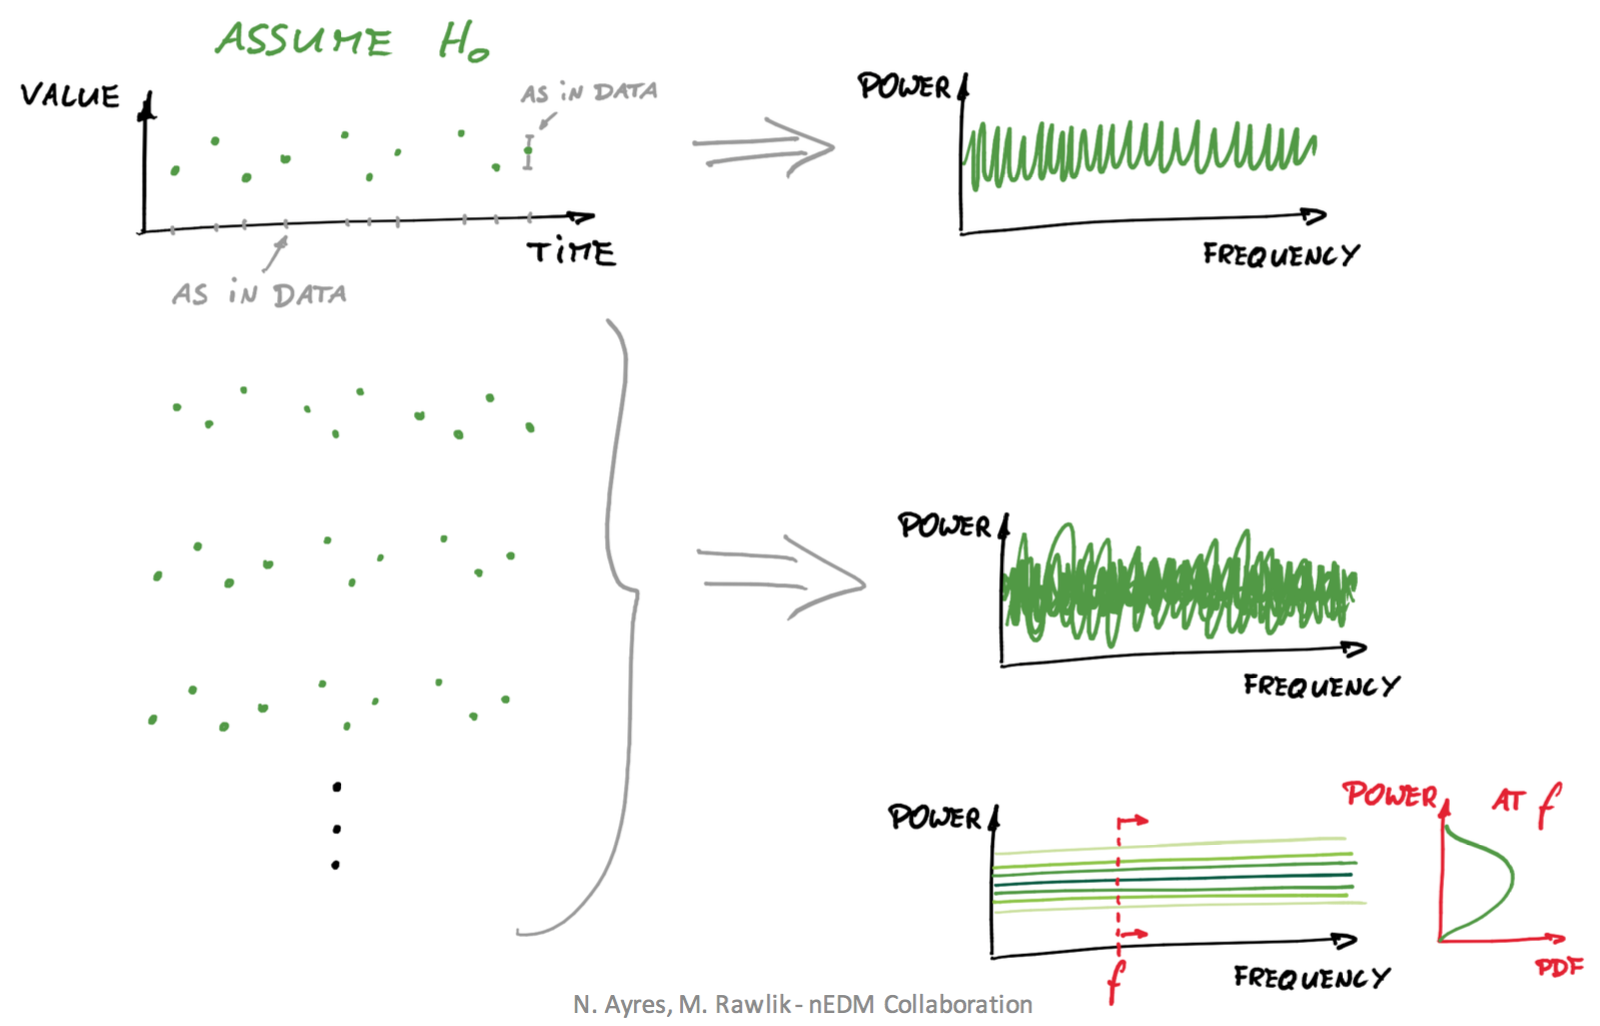 ASSUME H₀
VALUE
AS IN DATA
TIME
AS IN DATA
POWER
FREQUENCY
POWER
FREQUENCY
POWER
f
FREQUENCY
POWER AT f
PDF
N. Ayres, M. Rawlik - nEDM Collaboration